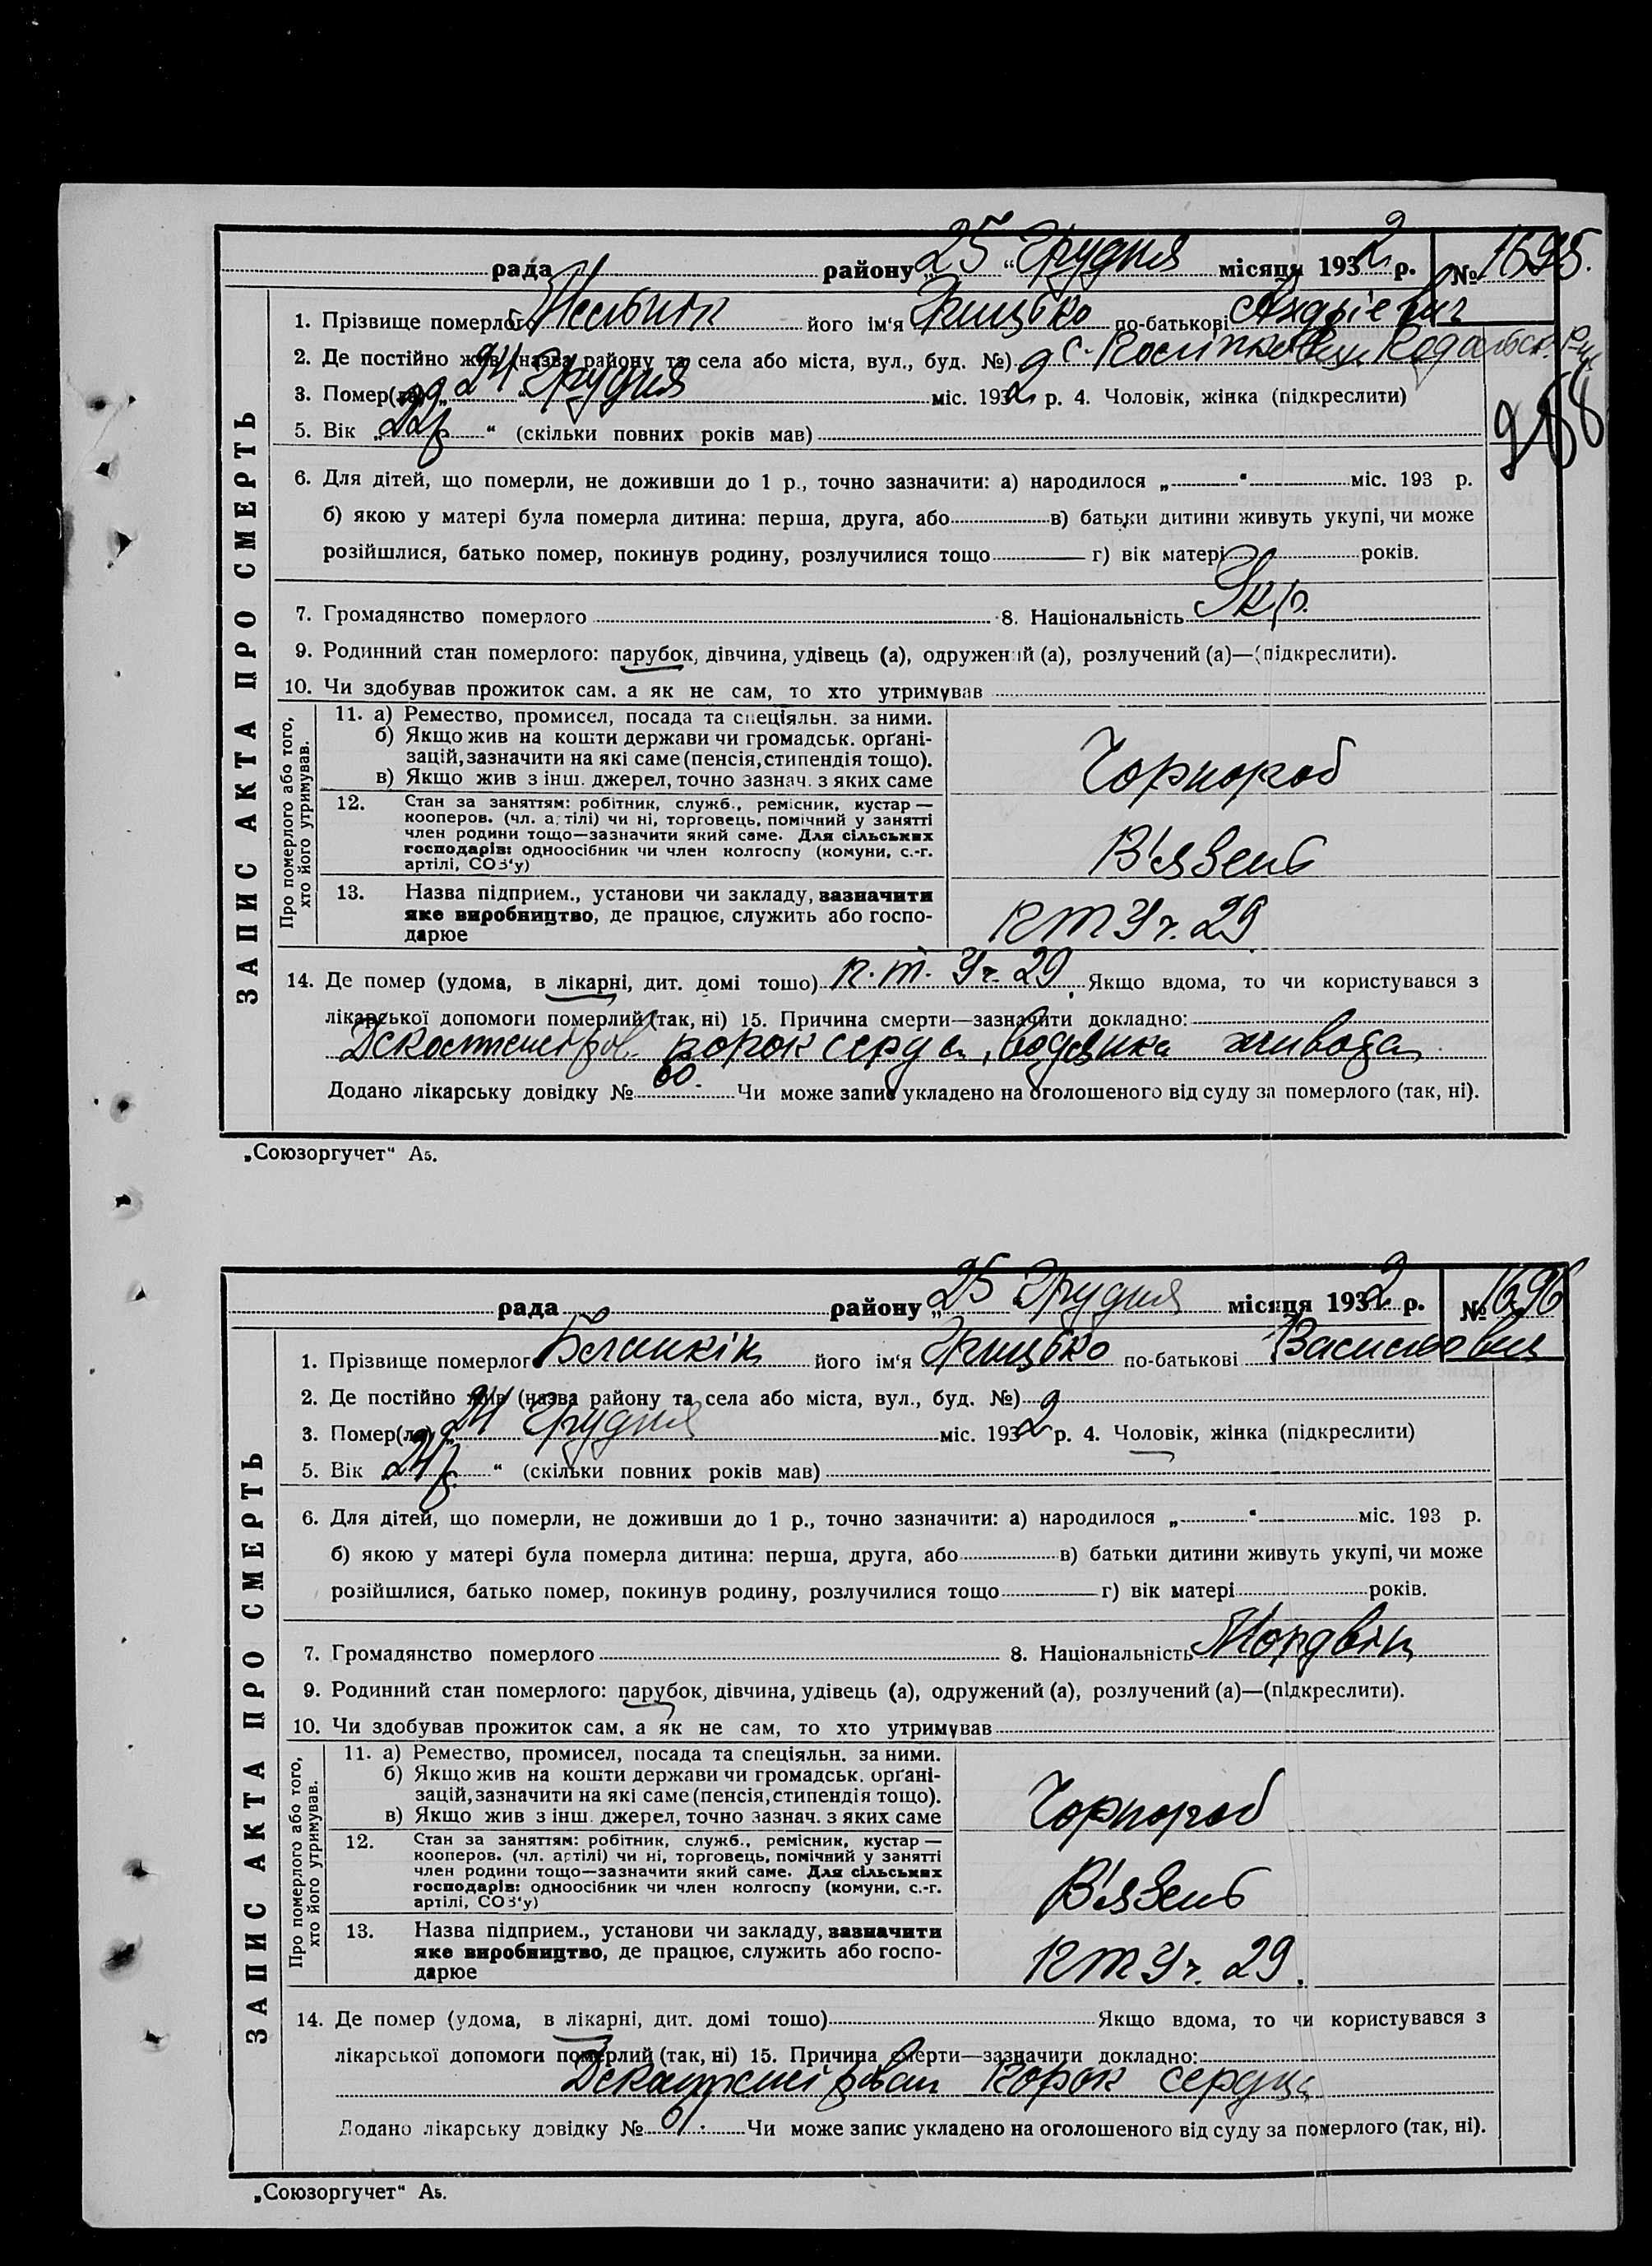 рада района „25“ Грудня місяця 1932 р. № 1695.
ЗАПИС АКТА ПРО СМЕРТЬ
1. Прізвище померлого його ім'я Грицько по-батькові Андрієвич
2. Де постійно жив (назва району та села або міста, вул., буд. №) с.
3. Помер(ла) „24“ Грудня міс. 1932 р. 4. Чоловік, жінка (підкреслити)
988
5. Вік „22 р.“ (скільки повних років мав)
6. Для дітей, що померли, не доживши до 1 р., точно зазначити: а) народилося „ “ міс. 193 р.
б) якою у матері була померла дитина: перша, друга, або в) батьки дитини живуть укупі, чи може
розійшлися, батько помер, покинув родину, розлучилися тощо г) вік матері років.
7. Громадянство померлого 8. Національність Укр.
9. Родинний стан померлого: парубок, дівчина, удівець (а), одружений (а), розлучений (а)—(підкреслити).
10. Чи здобував прожиток сам, а як не сам, то хто утримував
Про померлого або того, хто його утримував.
11. а) Ремество, промисел, посада та спеціяльн. за ними.
б) Якщо жив на кошти держави чи громадськ. орґані-
зацій, зазначити на які саме (пенсія, стипендія тощо).
в) Якщо жив з інш. джерел, точно зазнач. з яких саме
Чорнороб
12. Стан за заняттям: робітник, служб., ремісник, кустар —
кооперов. (чл. артілі) чи ні, торговець, помічний у занятті
член родини тощо—зазначити який саме. Для сільських
господарів: одноосібник чи член колгоспу (комуни, с.-г.
артілі, СОЗ'у)
В'язень
13. Назва підприєм., установи чи закладу, зазначити
яке виробництво, де працює, служить або госпо-
дарює
КТ Уч. 29
14. Де помер (удома, в лікарні, дит. домі тощо) К. т. Уч. 29. Якщо вдома, то чи користувався з
лікарської допомоги померлий (так, ні) 15. Причина смерти—зазначити докладно:
порок серця, водянка живота
Додано лікарську довідку № 60. Чи може запис укладено на оголошеного від суду за померлого (так, ні).
„Союзоргучет“ А5.
рада району „25“ Грудня місяця 1932 р. № 1696
ЗАПИС АКТА ПРО СМЕРТЬ
1. Прізвище померлого його ім'я Грицько по-батькові Василович
2. Де постійно жив (назва району та села або міста, вул., буд. №)
3. Помер(ла) „24“ Грудня міс. 1932 р. 4. Чоловік, жінка (підкреслити)
5. Вік „24 р.“ (скільки повних років мав)
6. Для дітей, що померли, не доживши до 1 р., точно зазначити: а) народилося „ “ міс. 193 р.
б) якою у матері була померла дитина: перша, друга, або в) батьки дитини живуть укупі, чи може
розійшлися, батько помер, покинув родину, розлучилися тощо г) вік матері років.
7. Громадянство померлого 8. Національність Мордвін
9. Родинний стан померлого: парубок, дівчина, удівець (а), одружений (а), розлучений (а)—(підкреслити).
10. Чи здобував прожиток сам, а як не сам, то хто утримував
Про померлого або того, хто його утримував.
11. а) Ремество, промисел, посада та спеціяльн. за ними.
б) Якщо жив на кошти держави чи громадськ. орґані-
зацій, зазначити на які саме (пенсія, стипендія тощо).
в) Якщо жив з інш. джерел, точно зазнач. з яких саме
Чорнороб
12. Стан за заняттям: робітник, служб., ремісник, кустар —
кооперов. (чл. артілі) чи ні, торговець, помічний у занятті
член родини тощо—зазначити який саме. Для сільських
господарів: одноосібник чи член колгоспу (комуни, с.-г.
артілі, СОЗ'у)
В'язень
13. Назва підприєм., установи чи закладу, зазначити
яке виробництво, де працює, служить або госпо-
дарює
КТ Уч. 29.
14. Де помер (удома, в лікарні, дит. домі тощо) Якщо вдома, то чи користувався з
лікарської допомоги померлий (так, ні) 15. Причина смерти—зазначити докладно:
порок серця
Додано лікарську довідку № 61. Чи може запис укладено на оголошеного від суду за померлого (так, ні).
„Союзоргучет“ А5.